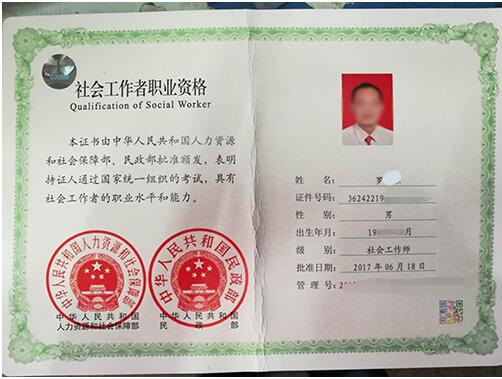 社会工作者职业资格
Qualification of Social Worker
本证书由中华人民共和国人力资源
和社会保障部、民政部批准颁发，表明
持证人通过国家统一组织的考试，具有
社会工作者的职业水平和能力。
中华人民共和国人力资源和社会保障部
中华人民共和国民政部
中华人民共和国
人力资源和社会保障部
中华人民共和国
民政部
姓名：罗
证件号码：36242219
性别：男
出生年月：19 月
级别：社会工作师
批准日期：2017年06月18日
管理号：